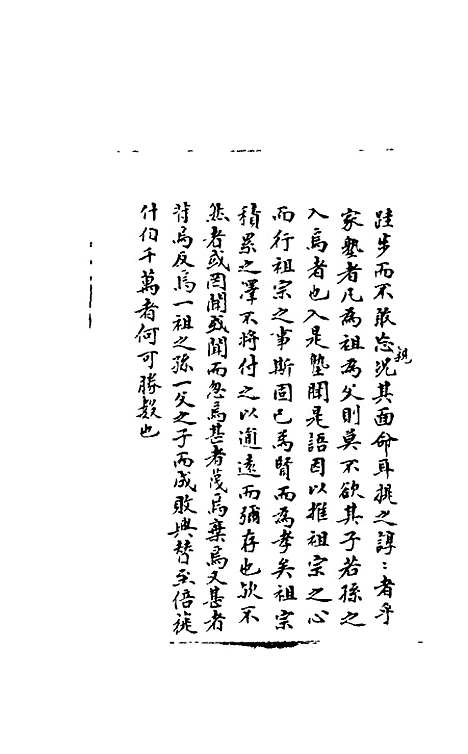 跬步而不敢忘況親其面命耳提之諄:者乎
家塾者凡為祖為父則莫不欲其子若孫之
入焉者也入是塾聞是語因以推祖宗之心
而行祖宗之事斯固已為賢而為孝矣祖宗
積累之澤不將付之以逾遠而彌存也欤不
然者或罔聞或聞而忽焉甚者蔑焉棄焉又甚者
背焉反焉一祖之孫一父之子而成敗興替至倍蓰
什伯千萬者何可勝數也